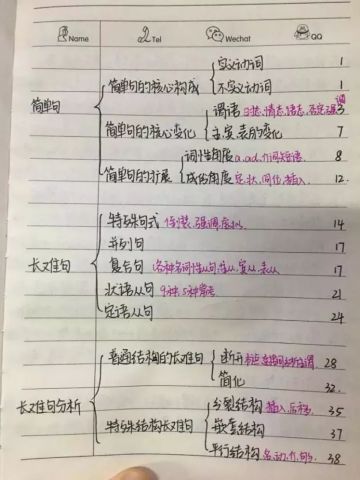 Name Tel Wechat QQ
实义动词 1
简单句的核心构成
不实义动词 1
谓语 时态,情态,语态,否定,强调 3
简单句 简单句的核心变化
主宾表的变化 7
词性角度 a.ad.介词短语. 8
简单句的扩展
成份角度 定.状.同位.插入. 12
特殊句式 倒装.强调.虚拟. 14
并列句 17
长难句 复合句 各种名词性从句,主从.宾从.表从 17
状语从句 9种, 21
定语从句 24
普通结构的长难句 断开 28
简化 32
长难句分析
分裂结构 插入. 35
特殊结构长难句 嵌套结构 37
平行结构 名.动.介.句子. 38